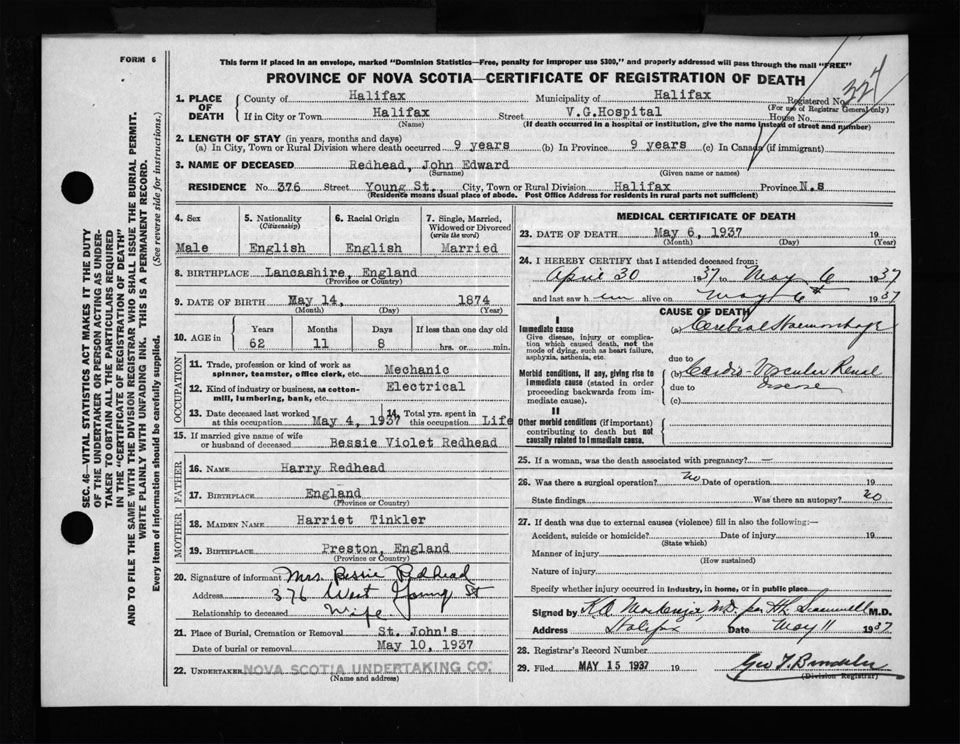 FORM 6
This form if placed in an envelope, marked "Dominion Statistics—Free, penalty for improper use $300," and properly addressed will pass through the mail "FREE"
PROVINCE OF NOVA SCOTIA—CERTIFICATE OF REGISTRATION OF DEATH
1. PLACE OF DEATH
County of Halifax Municipality of Halifax Registered No. 
(For use of Registrar General only)
If in City or Town Halifax Street V.G.Hospital House No.
(Name) (If death occurred in a hospital or institution, give the name instead of street and number)
2. LENGTH OF STAY (in years, months and days)
(a) In City, Town or Rural Division where death occurred 9 years (b) In Province 9 years (c) In Canada (if immigrant)
3. NAME OF DECEASED Redhead, John Edward
(Surname) (Given name or names)
RESIDENCE No. 376 Street Young St., City, Town or Rural Division Halifax Province N.s
(Residence means usual place of abode. Post Office Address for residents in rural parts not sufficient)
4. Sex Male
5. Nationality (Citizenship) English
6. Racial Origin English
7. Single, Married, Widowed or Divorced (write the word) Married
8. BIRTHPLACE Lancashire, England
(Province or Country)
9. DATE OF BIRTH May 14, 1874
(Month) (Day) (Year)
10. AGE in Years 62 Months 11 Days 8 If less than one day old hrs. or min.
OCCUPATION
11. Trade, profession or kind of work as spinner, teamster, office clerk, etc. Mechanic
12. Kind of industry or business, as cotton-mill, lumbering, bank, etc. Electrical
13. Date deceased last worked at this occupation May 4, 1937
14. Total yrs. spent in this occupation Life
15. If married give name of wife or husband of deceased Bessie Violet Redhead
FATHER
16. NAME Harry Redhead
17. BIRTHPLACE England
(Province or Country)
MOTHER
18. MAIDEN NAME Harriet Tinkler
19. BIRTHPLACE Preston, England
(Province or Country)
20. Signature of informant Mrs. Bessie Redhead
Address 376 West Young St
Relationship to deceased Wife
21. Place of Burial, Cremation or Removal St. John's
Date of burial or removal May 10, 1937
22. UNDERTAKER NOVA SCOTIA UNDERTAKING CO.
(Name and address)
MEDICAL CERTIFICATE OF DEATH
23. DATE OF DEATH May 6, 1937 19
(Month) (Day) (Year)
24. I HEREBY CERTIFY that I attended deceased from:
April 30 1937 to May 6 1937
and last saw him alive on May 6th 1937
CAUSE OF DEATH
I
Immediate cause
Give disease, injury or complication which caused death, not the mode of dying, such as heart failure, asphyxia, asthenia, etc.
(a) Cerebral Haemorrhage
due to
Morbid conditions, if any, giving rise to immediate cause (stated in order proceeding backwards from immediate cause).
(b) Cardio-Vascular Renal disease
due to
(c)
II
Other morbid conditions (if important) contributing to death but not causally related to immediate cause.
25. If a woman, was the death associated with pregnancy? —
26. Was there a surgical operation? no Date of operation 19
State findings Was there an autopsy? no
27. If death was due to external causes (violence) fill in also the following:—
Accident, suicide or homicide? Date of injury 19
(State which)
Manner of injury
(How sustained)
Nature of injury
Specify whether injury occurred in industry, in home, or in public place
Signed by K.A. MacKenzie M.D. per M.D.
Address Halifax Date May 11 1937
28. Registrar's Record Number
29. Filed MAY 15 1937 19
(Division Registrar)
SEC. 46—VITAL STATISTICS ACT MAKES IT THE DUTY
OF THE UNDERTAKER OR PERSON ACTING AS UNDER-
TAKER TO OBTAIN ALL THE PARTICULARS REQUIRED
IN THE "CERTIFICATE OF REGISTRATION OF DEATH"
AND TO FILE THE SAME WITH THE DIVISION REGISTRAR WHO SHALL ISSUE THE BURIAL PERMIT.
WRITE PLAINLY WITH UNFADING INK. THIS IS A PERMANENT RECORD.
Every item of information should be carefully supplied. (See reverse side for instructions.)